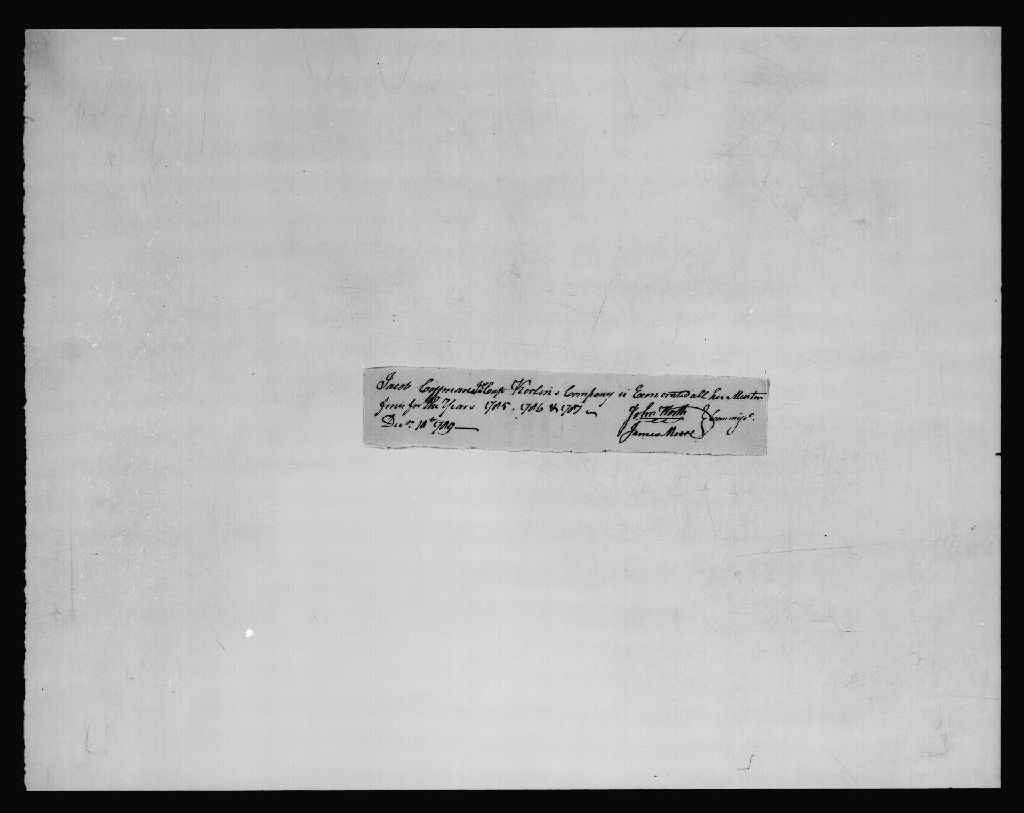 Jacob Coffman Capt Kerlin's Company is Exoneratid all his Muster
fines for the Years 1785, 1786 & 1787
John Worth
Decr. 10th 1789
James Moore
Commissrs.